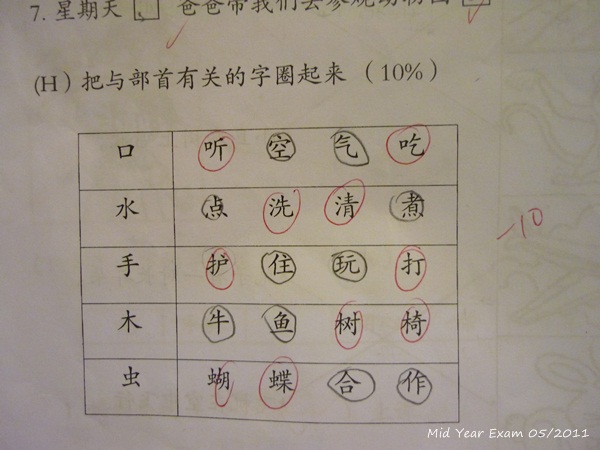 7. 星期天 、 爸爸带我们去参观动物园
(H) 把与部首有关的字圈起来 (10%)
口 听 空 气 吃
水 点 洗 清 煮
手 护 住 玩 打
木 牛 鱼 树 椅
虫 蝴 蝶 合 作
-10
Mid Year Exam 05/2011